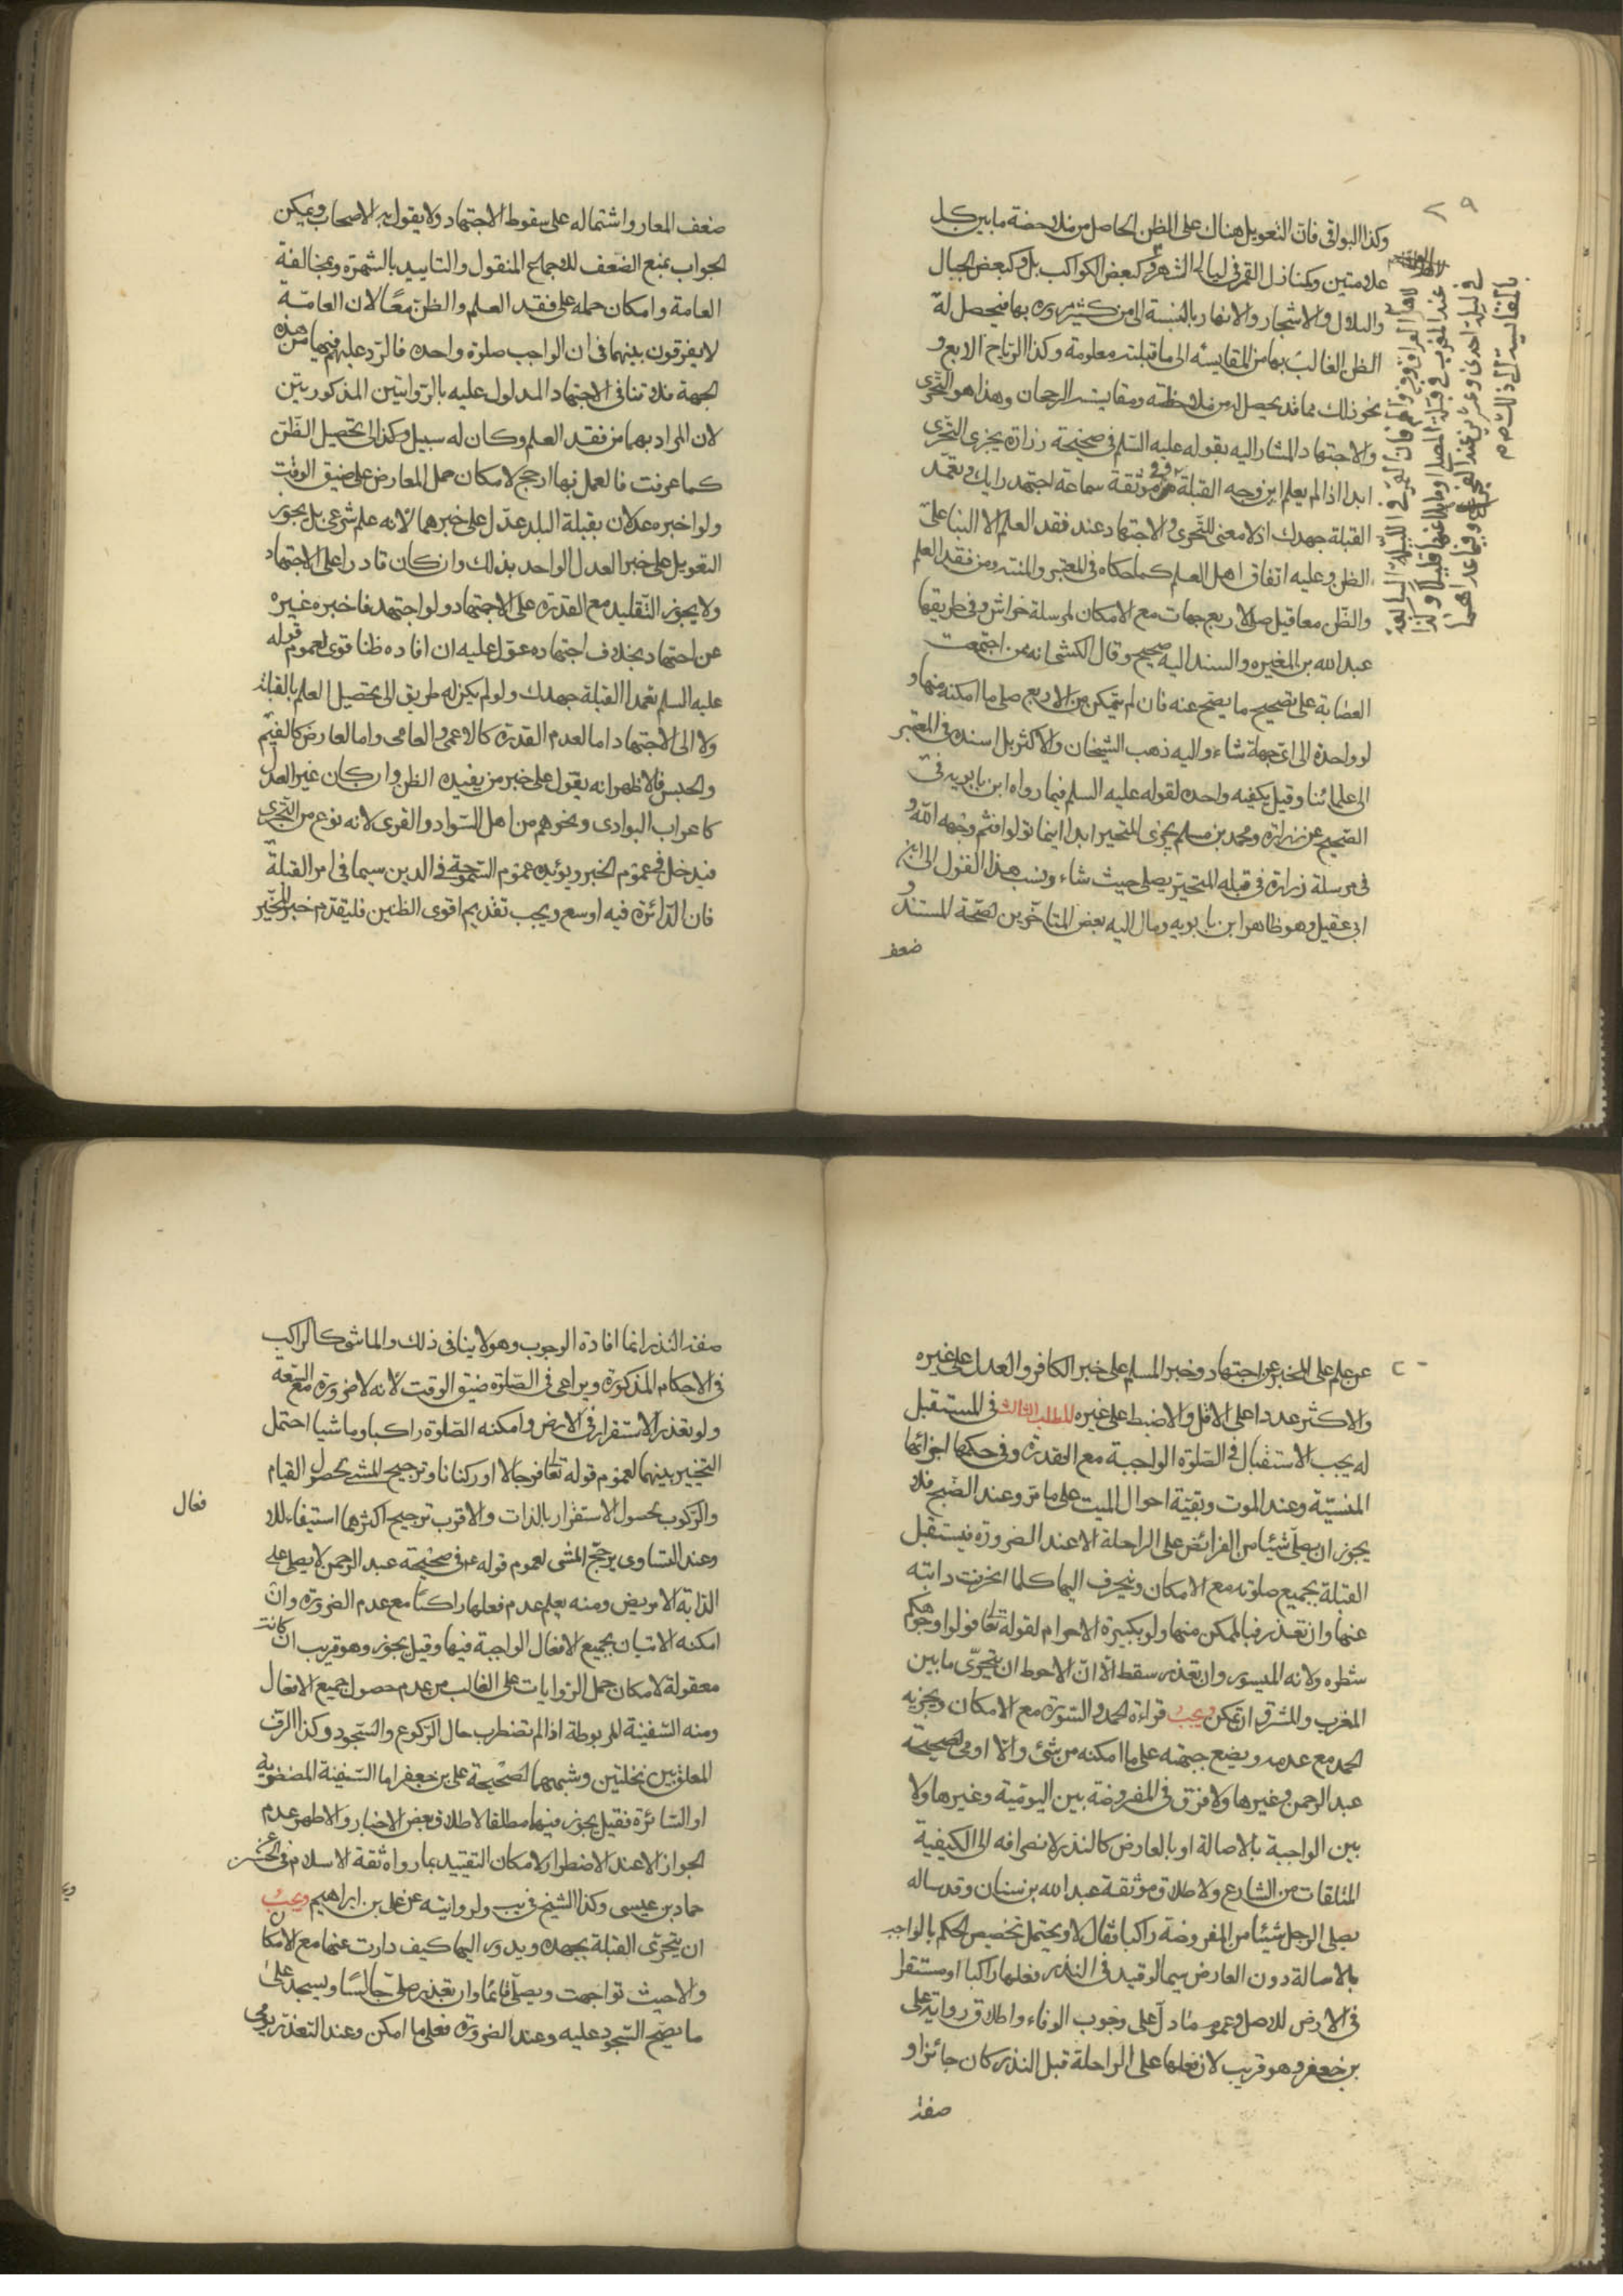 ٢٩
وكذا البواقى فان التعويل هناك على الظن الحاصل من ملاحضة ما بين كل
علامتين وكمنازل القمر فى ليالى الشهر وكبعض الكواكب بل وكبعض الجبال
والتلال والاشجار والانهار بالنسبة الى من كثر مروره بها فيحصل له
الظن الغالب بها من المقايسة الى ما قبلته معلومة وكذا الرياح الاربع و
نحو ذلك مما قد يحصل له من ملاحظته ومقايسته الرجحان وهذا هو التحرى
والاجتهاد المشار اليه بقوله عليه السلم فى صحيحة زرارة يجزى التحرى
ابدا اذا لم يعلم اين وجه القبلة وفى موثقة سماعة اجتهد رايك وتعمد
القبلة جهدك اذ لا معنى للتحرى والاجتهاد عند فقد العلم الا البناء على
الظن وعليه اتفاق اهل العلم كما حكاه فى المعتبر والمنتهى ومن فقد العلم
والظن معا قيل صلى لاربع جهات مع الامكان لمرسلة خراش وفى طريقها
عبد الله بن المغيره والسند اليه صحيح وقال الكشى انه ممن اجتمعت
العصابة على تصحيح ما يصح عنه فان لم يتمكن من الاربع صلى ما امكنه منها و
لو واحدة الى اى جهة شاء واليه ذهب الشيخان والاكثر بل اسنده فى المعتبر
الى علمائنا وقيل يكفيه واحده لقوله عليه السلم فيما رواه ابن بابويه فى
الصحيح عن زرارة ومحمد بن مسلم يجزى المتحير ابدا اينما تولوا فثم وجه الله و
فى مرسلة زرارة فى قبله المتحير يصلى حيث شاء ونسب هذا القول الى ابن
ابى عقيل وهو ظاهر ابن بابويه ومال اليه بعض المتاخرين لصحة المستند و
ضعف
لاهل العراق فانه فى الليلة السابعة
عند المغرب فى قبلة المصلى
فى ليلة احدى وعشرين عند الفجر وفيما عداهما
بالمقايسة الى ذلك
ضعف المعار واشتماله على سقوط الاجتهاد ولا يقول به الاصحاب ويمكن
الجواب بمنع الضعف للاجماع المنقول والتاييد بالشهرة وبمخالفة
العامة وامكان حمله على فقد العلم والظن معا لان العامة
لا يفرقون بينهما فى ان الواجب صلوة واحده فالرد عليهم فيها من هذه
الجهة فلا تنافى الاجتهاد المدلول عليه بالروايتين المذكورتين
لان المراد بهما من فقد العلم وكان له سبيل وكذا الى تحصيل الظن
كما عرفت فالعمل بها ارجح لامكان حمل المعارض على ضيق الوقت
ولو اخبره عدلان بقبلة البلد عدل على خبرهما لانه علم شرعى بل يجوز
التعويل على خبر العدل الواحد بذلك وان كان قادرا على الاجتهاد
ولا يجوز التقليد مع القدرة على الاجتهاد ولو اجتهد فاخبره غيره
عن اجتهاد بخلاف اجتهاده عول عليه ان افاده ظنا قوى لعموم قوله
عليه السلم تعمد القبلة جهدك ولو لم يكن له طريق الى تحصيل العلم بالقبلة
ولا الى الاجتهاد اما لعدم القدرة كالاعمى والعامى واما لعارض كالغيم
والحبس فالاظهر انه يعول على خبر من يفيده الظن وان كان غير العدل
كاعراب البوادى ونحوهم من اهل السواد والقرى لانه نوع من التحرى
فيدخل فى عموم الخبر ويؤيده عموم السمحة فى الدين سيما فى امر القبلة
فان الدائرة فيه اوسع ويجب تقديم اقوى الظنين فليقدم خبر المخبر
عن علم على المخبر عن اجتهاد وخبر المسلم على خبر الكافر والعدل على غيره
والاكثر عددا على الاقل والاضبط على غيره المطلب الثالث فى المستقبل
له يجب الاستقبال فى الصلوة الواجبة مع القدرة وفى حكمها اجزائها
المنسية وعند الموت وبقية احوال الميت على ما مر وعند الذبح فلا
يجوز ان يصلى شيئا من الفرائض على الراحلة الا عند الضرورة فيستقبل
القبلة بجميع صلوته مع الامكان وينحرف اليها كلما انحرفت دابته
عنها وان تعذر فبالممكن منها ولو بتكبيرة الاحرام لقوله تعا فولوا وجوهكم
شطره ولانه الميسور وان تعذر سقط الا ان الاحوط ان يتحرى ما بين
المغرب والمشرق ان تمكن ويجب قراءة الحمد والسورة مع الامكان ويجزيه
الحمد مع عدمه ويضع جبهته على ما امكنه من شئ والا اومى لصحيحة
عبد الرحمن وغيرها ولا فرق فى المفروضة بين اليومية وغيرها ولا
بين الواجبة بالاصالة او بالعارض كالنذر لانصرافه الى الكيفية
المتلقات من الشارع ولاطلاق موثقة عبد الله بن سنان وقد ساله
يصلى الرجل شيئا من المفروضة راكبا فقال لا ويحتمل تخصيص الحكم بالواجب
بالاصالة دون العارض سيما لو قيد فى النذر فعلها راكبا او مستقرا
فى الارض للاصل وعموم ما دل على وجوب الوفاء واطلاق رواية على
بن جعفر وهو قريب لان فعلها على الراحلة قبل النذر كان جائزا و
صفة
صفة النذر انما افادة الوجوب وهو لا ينافى ذلك والماشى كالراكب
فى الاحكام المذكورة ويراعى فى الصلوة ضيق الوقت لانه لا ضرورة مع السعة
ولو تعذر الاستقرار فى الارض وامكنه الصلوة راكبا وماشيا احتمل
التخيير بينهما لعموم قوله تعا فرجالا او ركبانا وترجيح المشى لحصول القيام
والركوب لحصول الاستقرار بالذات والاقرب ترجيح اكثرهما استيفاء للا
فعال
وعند التساوى يرجح المشى لعموم قوله ع فى صحيحة عبد الرحمن لا يصلى على
الدابة الا مريض ومنه يعلم عدم فعلها راكبا مع عدم الضرورة وان
امكنه الاتيان بجميع الافعال الواجبة فيها وقيل يجوز وهو قريب ان كانت
معقولة لامكان حمل الروايات على الغالب من عدم حصول جميع الافعال
ومنه السفينة المربوطة اذا لم تضطرب حال الركوع والسجود وكذا الرف
المعلق بين نخلتين وشبههما لصحيحة على بن جعفر اما السفينة
او السائرة فقيل يجوز فيها مطلقا لاطلاق بعض الاخبار والاظهر عدم
الجواز الا عند الاضطرار لامكان التقييد بما رواه ثقة الاسلام فى الحسن عن
حماد بن عيسى وكذا الشيخ فى يب ولروايته عن على بن ابراهيم ويجب
ان يتحرى القبلة بجهده ويدور اليها كيف دارت عنها مع الامكان
والا حيث تواجهت ويصلى قائما وان تعذر صلى جالسا ويسجد على
ما يصح السجود عليه وعند الضرورة فعلى ما امكن وعند التعذر يومى